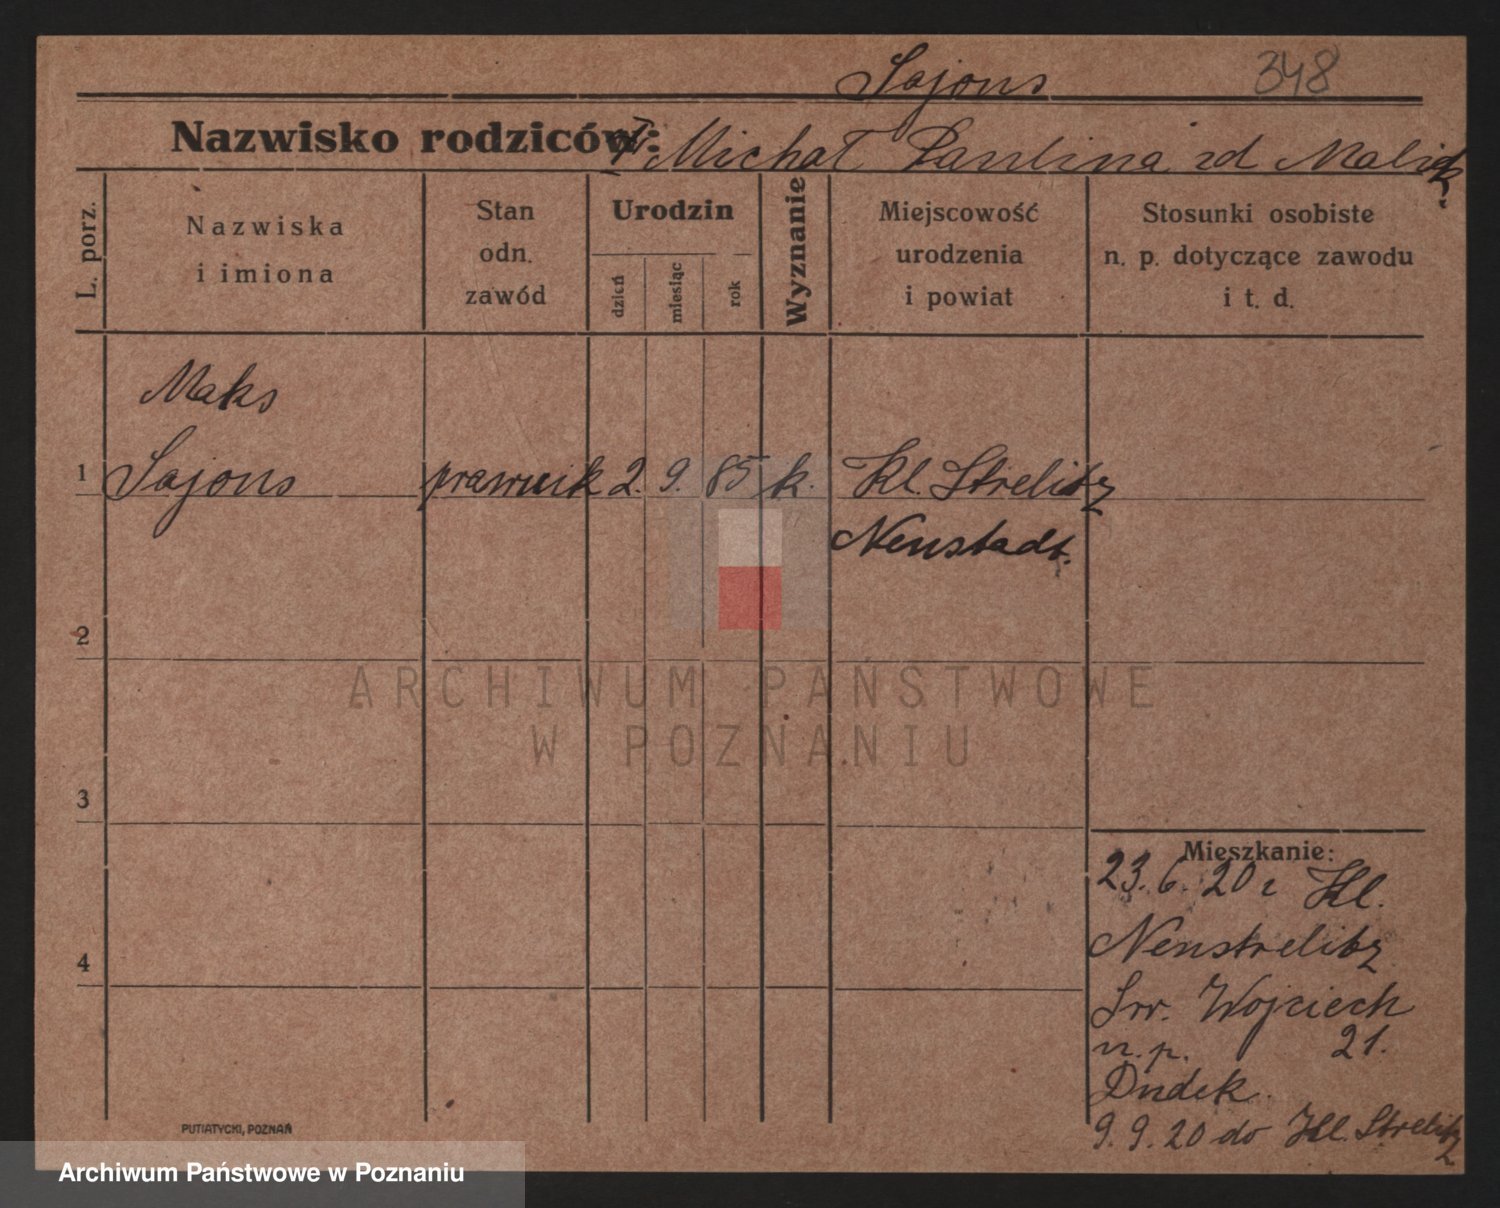 Sajons 348
Nazwisko rodziców: Michał Paulina zd Malik
L. porz.
Nazwiska
i imiona
Stan
odn.
zawód
Urodzin
dzień
miesiąc
rok
Wyznanie
Miejscowość
urodzenia
i powiat
Stosunki osobiste
n. p. dotyczące zawodu
i t. d.
Maks
1 Sajons prawnik 2. 9. 85 k. Kl. Strelitz
Neustadt.
2
3
4
Mieszkanie:
23. 6. 20 z Kl.
Neustrelitz
Św. Wojciech
n. p. 21.
Dudek.
9. 9. 20 do Kl. Strelitz
PUTIATYCKI, POZNAŃ
ARCHIWUM PAŃSTWOWE
W POZNANIU
Archiwum Państwowe w Poznaniu